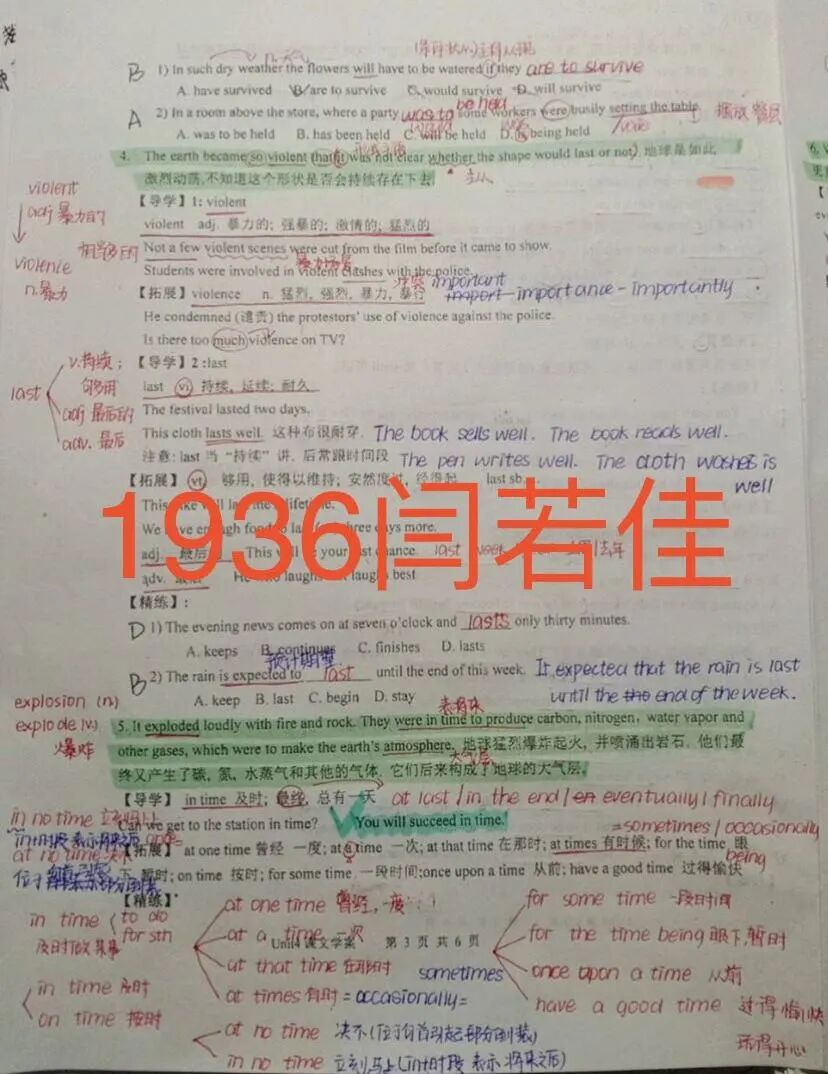 B 1) In such dry weather the flowers will have to be watered if they are to survive
A. have survived B. are to survive C. would survive D. will survive
A 2) In a room above the store, where a party was to be held some workers were busily setting the table.
A. was to be held B. has been held C. will be held D. is being held
4. The earth became so violent that it was not clear whether the shape would last or not. 地球是如此
激烈动荡,不知道这个形状是否会持续存在下去
【导学】1: violent
violent
adj 暴力的
violence
n.暴力
violent adj. 暴力的；强暴的；激情的；猛烈的
相当多的 Not a few violent scenes were cut from the film before it came to show.
Students were involved in violent clashes with the police.
【拓展】violence n. 猛烈，强烈，暴力，暴行 important importance - importantly
He condemned (谴责) the protestors' use of violence against the police.
Is there too much violence on TV?
【导学】2 :last
last
v.持续；
够用
adj 最后的
adv. 最后
last vi 持续，延续；耐久
The festival lasted two days.
This cloth lasts well. 这种布很耐穿. The book sells well. The book reads well.
注意: last 当“持续”讲，后常跟时间段 The pen writes well. The cloth washes is
well
【拓展】vt. 够用，使得以维持；安然度过，经得起 last sb.
1936闫若佳
three days more.
adj. 最后 This will be your last chance.
adv. 最后 He who laughs last laughs best
【精练】:
D 1) The evening news comes on at seven o'clock and lasts only thirty minutes.
A. keeps B. continues C. finishes D. lasts
B 2) The rain is expected to last until the end of this week. It expected that the rain is last
until the end of the week.
A. keep B. last C. begin D. stay
explosion (n)
explode (v.)
爆炸
5. It exploded loudly with fire and rock. They were in time to produce carbon, nitrogen, water vapor and
other gases, which were to make the earth's atmosphere. 地球猛烈爆炸起火，并喷涌出岩石，他们最
大气层
终又产生了碳，氮，水蒸气和其他的气体，它们后来构成了地球的大气层。
【导学】 in time 及时；最终，总有一天 at last / in the end / eventually / finally
Can we get to the station in time? You will succeed in time.
=sometimes / occasionally
【拓展】 at one time 曾经 一度; at a time 一次; at that time 在那时; at times 有时候; for the time being 眼
下,暂时; on time 按时; for some time 一段时间;once upon a time 从前; have a good time 过得愉快
【精练】
in time to do
for sth
及时做某事
in time 及时
on time 按时
at one time 曾经,一度
at a time 一次
Unit4 课文学案 第 3 页 共 6 页
at that time 在那时
at times 有时 = occasionally = sometimes
at no time 决不(位于句首引起部分倒装)
in no time 立刻马上(in+时段 表示将来之后)
for some time 一段时间
for the time being 眼下,暂时
once upon a time 从前
have a good time 过得愉快
玩得开心